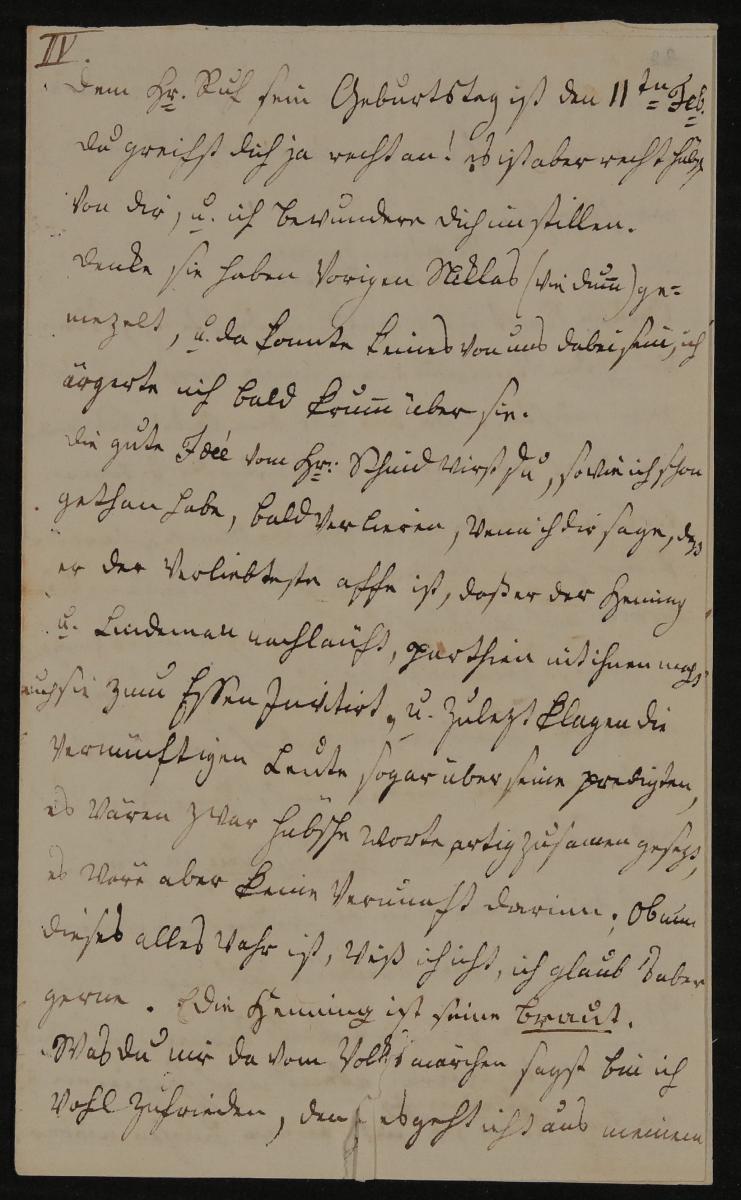 IV.
Dem Hr. Ruf sein Geburtstag ist den 11tn Feb.
du greifst dich ja recht an! es ist aber recht hübsch
von dir, u. ich bewundere dich im stillen.
denke sie haben vorigen Niklas (wie dum̅) ge=
mezelt, u. da konnte keines von uns dabei sein, ich
ärgerte mich bald krum̅ über sie.
die gute Idée vom Hr. Schmid wirst du, so wie ich schon
gethan habe, bald verlieren, wenn ich dir sage, daß
er der verliebteste affe ist, daß er der Henning
u. Lindeman nachlauft, parthien mit ihnen macht
auch sie zum Essen Invitirt, u. zulezt klagen die
vernünftigen Leute sogar über seine predigten,
es wären zwar hübsche worte artig zusamen gesezt,
es wäre aber keine Vernunft darinn; Ob nun
dieses alles wahr ist, weiß ich nicht, ich glaub's aber
gerne. Die Henning ist seine Braut.
Was du mir da vom Volksmärchen sagst bin ich
wohl zufrieden, den es geht nicht aus meinem